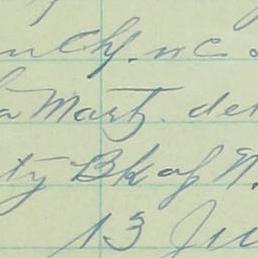 Chf. nc
a Martz. de
ty Bk of N.
13 Ju